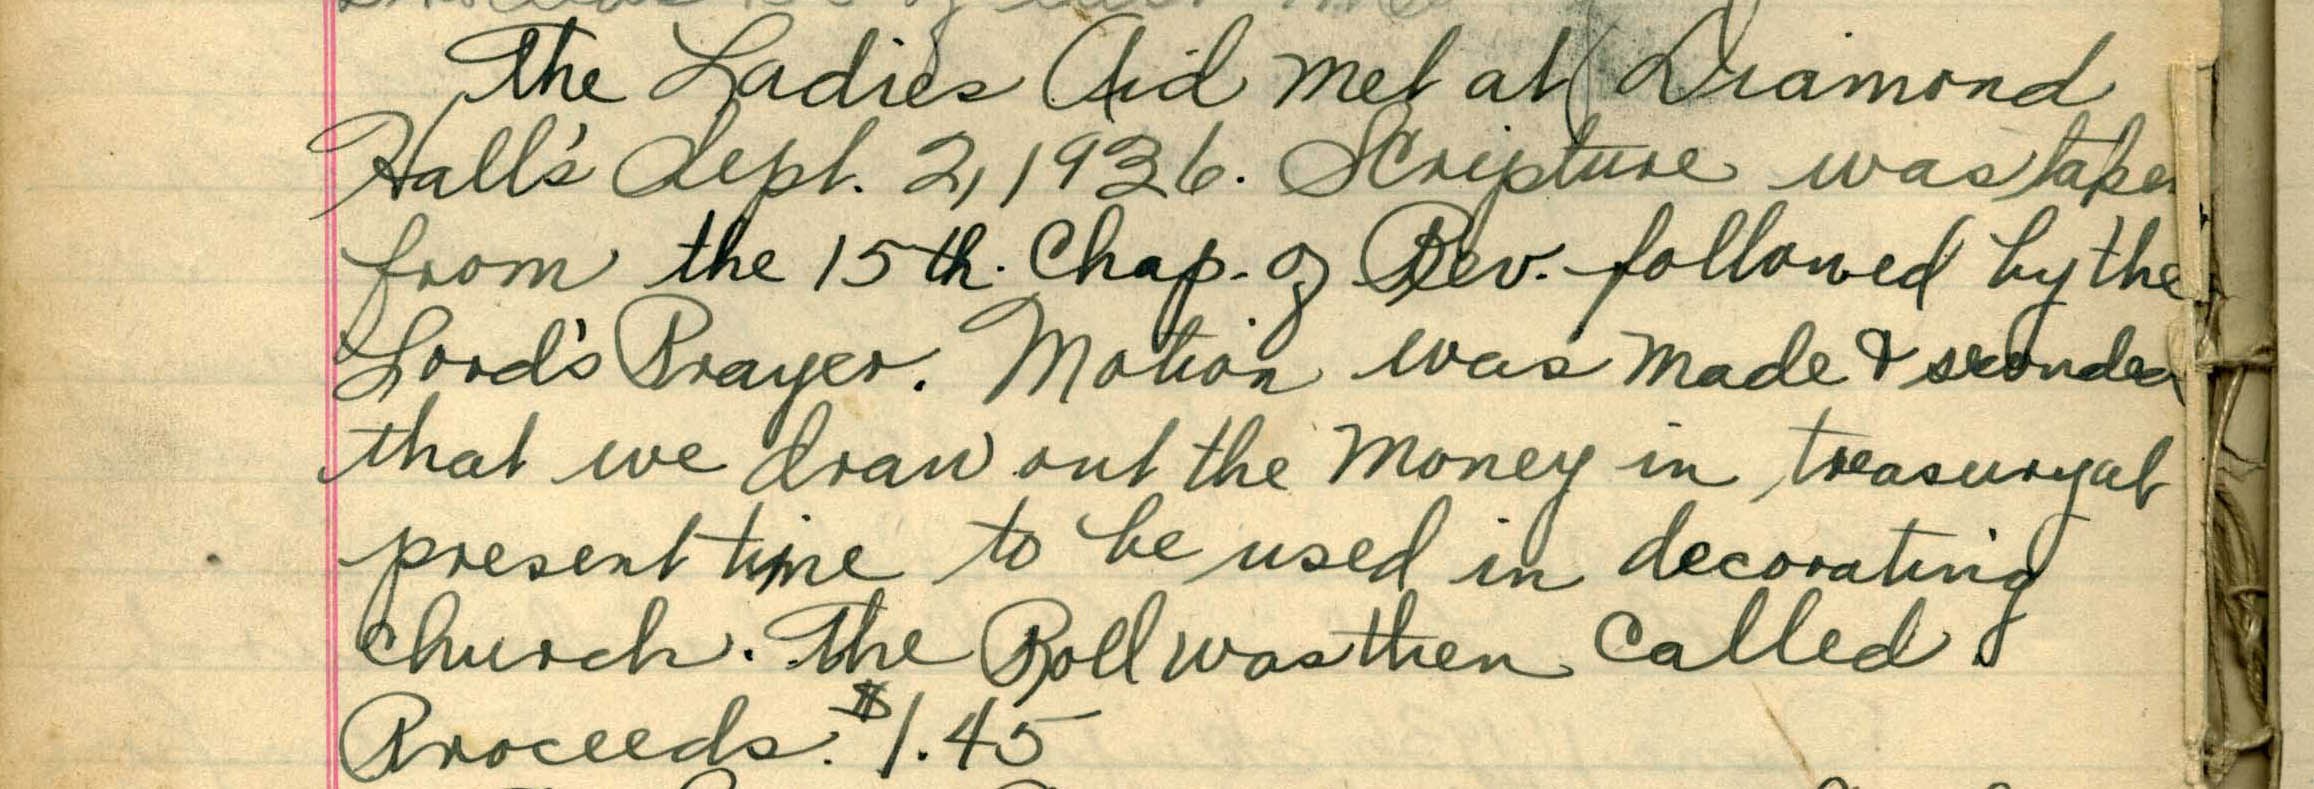 The Ladies Aid met at Diamond
Hall's Sept. 2, 1936. Scripture was taken
from the 15th. Chap. of Rev. followed by the
Lord's Prayer. Motion was made & seconded
that we draw out the money in treasury at
present time to be used in decorating
church. The Roll was then called.
Proceeds. $1.45